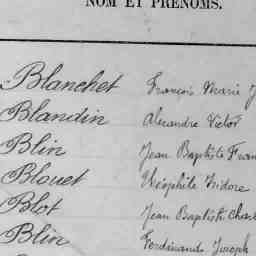 NOM ET PRÉNOMS.
Blanchet François Marie J
Blandin Alexandre Victor
Blin Jean Baptiste Fran
Blouet Théophile Isidore
Blot Jean Baptiste Charl
Blin Ferdinand Joseph